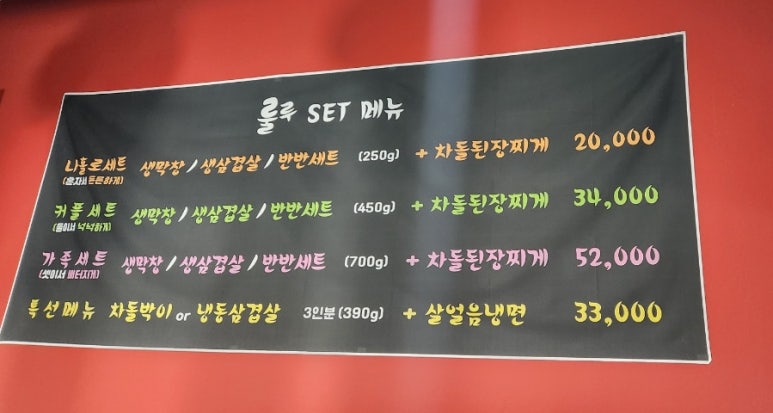 룰루 SET 메뉴
나홀로세트 생막창 / 생삼겹살 / 반반세트 (250g) + 차돌된장찌게 20,000
(혼자서 든든하게)
커플세트 생막창 / 생삼겹살 / 반반세트 (450g) + 차돌된장찌게 34,000
(둘이서 넉넉하게)
가족세트 생막창 / 생삼겹살 / 반반세트 (700g) + 차돌된장찌게 52,000
(셋이서 배터지게)
특선메뉴 차돌박이 or 냉동삼겹살 3인분 (390g) + 살얼음냉면 33,000